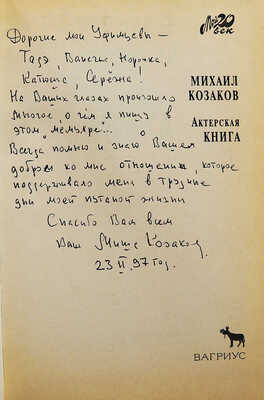 Дорогие мои Уфимцевы –
Таза, Ванечка, Норочка,
Катюша, Серёжа!
На Ваших глазах произошло
многое, о чём я пишу в
этом "мемуаре"...
Всегда помню и знаю Ваше
доброе ко мне отношение, которое
поддерживало меня в трудные
дни моей путаной жизни
Спасибо Вам всем
Ваш Миша Козаков
23 II 97 год.
Мой 20 век
МИХАИЛ
КОЗАКОВ
АКТЕРСКАЯ
КНИГА
ВАГРИУС